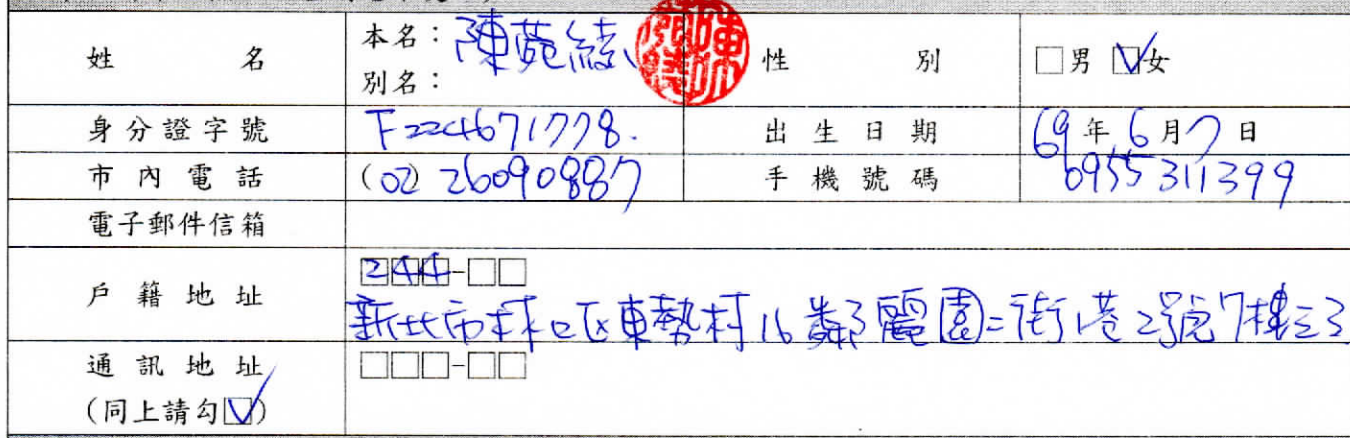 姓 名 本名：陳菀綾 性 別 □男 ☑女
別名：
身分證字號 F224671778. 出生日期 69年6月7日
市內電話 (02) 26090887 手機號碼 0955311399
電子郵件信箱
戶籍地址 244-□□
新北市林口区東勢村16鄰麗園二街1巷2號7樓之3
通訊地址 □□□-□□
(同上請勾☑)